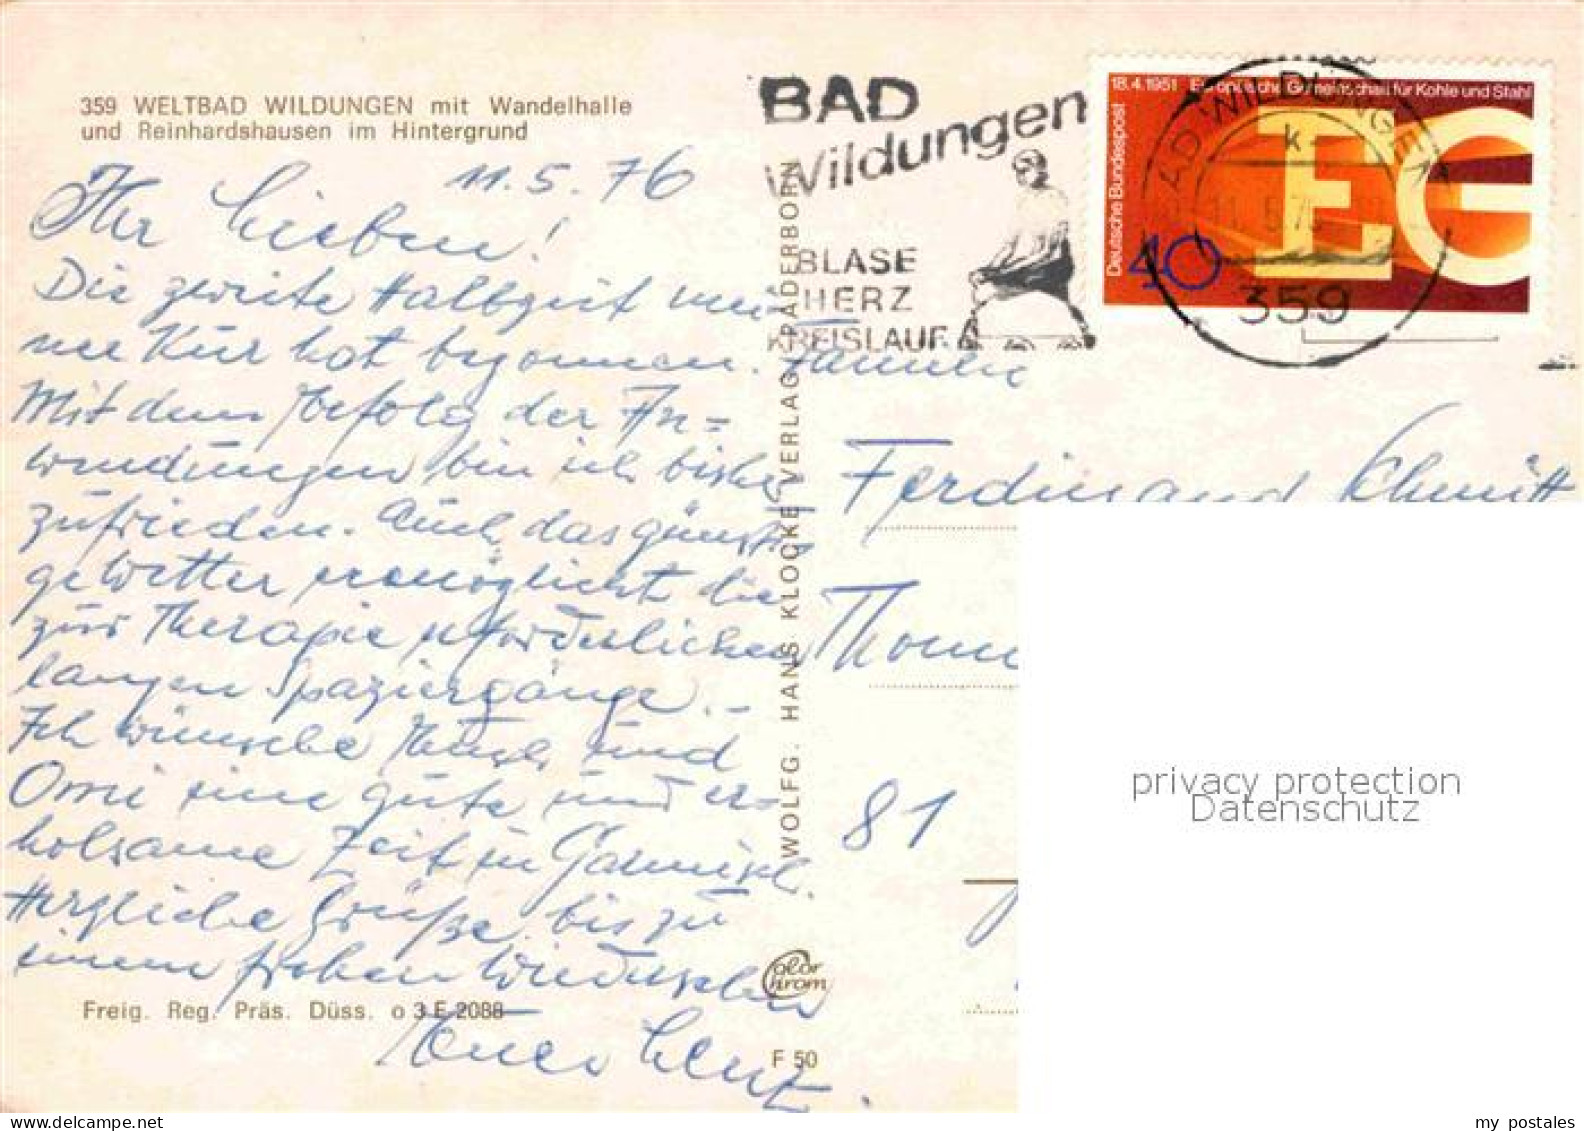 359 WELTBAD WILDUNGEN mit Wandelhalle
und Reinhardshausen im Hintergrund
11.5.76
Ihr Lieben!
Die zweite Halbzeit mei-
ner Kur hat begonnen.
Mit dem Erfolg der An=
wendungen bin ich bisher
zufrieden. Auch das günsti-
ge Wetter ermöglicht die
zur Therapie erforderlichen
langen Spaziergänge.
Ich wünsche Euch und
Omi eine gute und er=
holsame Zeit in Garmisch.
Herzliche Grüße bis zu
einem frohen Wiedersehen
Euer
Freig. Reg. Präs. Düss. o 3 E 2088
WOLFG. HANS KLOCKE VERLAG PADERBORN
Color
Chrom
F 50
BAD
Wildungen
BLASE
HERZ
KREISLAUF
18.4.1951 Europäische Gemeinschaft für Kohle und Stahl
Deutsche Bundespost
40
EG
BAD WILDUNGEN 1
k
11.5.76
359
Familie
Ferdinand Schmitt
81
privacy protection
Datenschutz
my postales